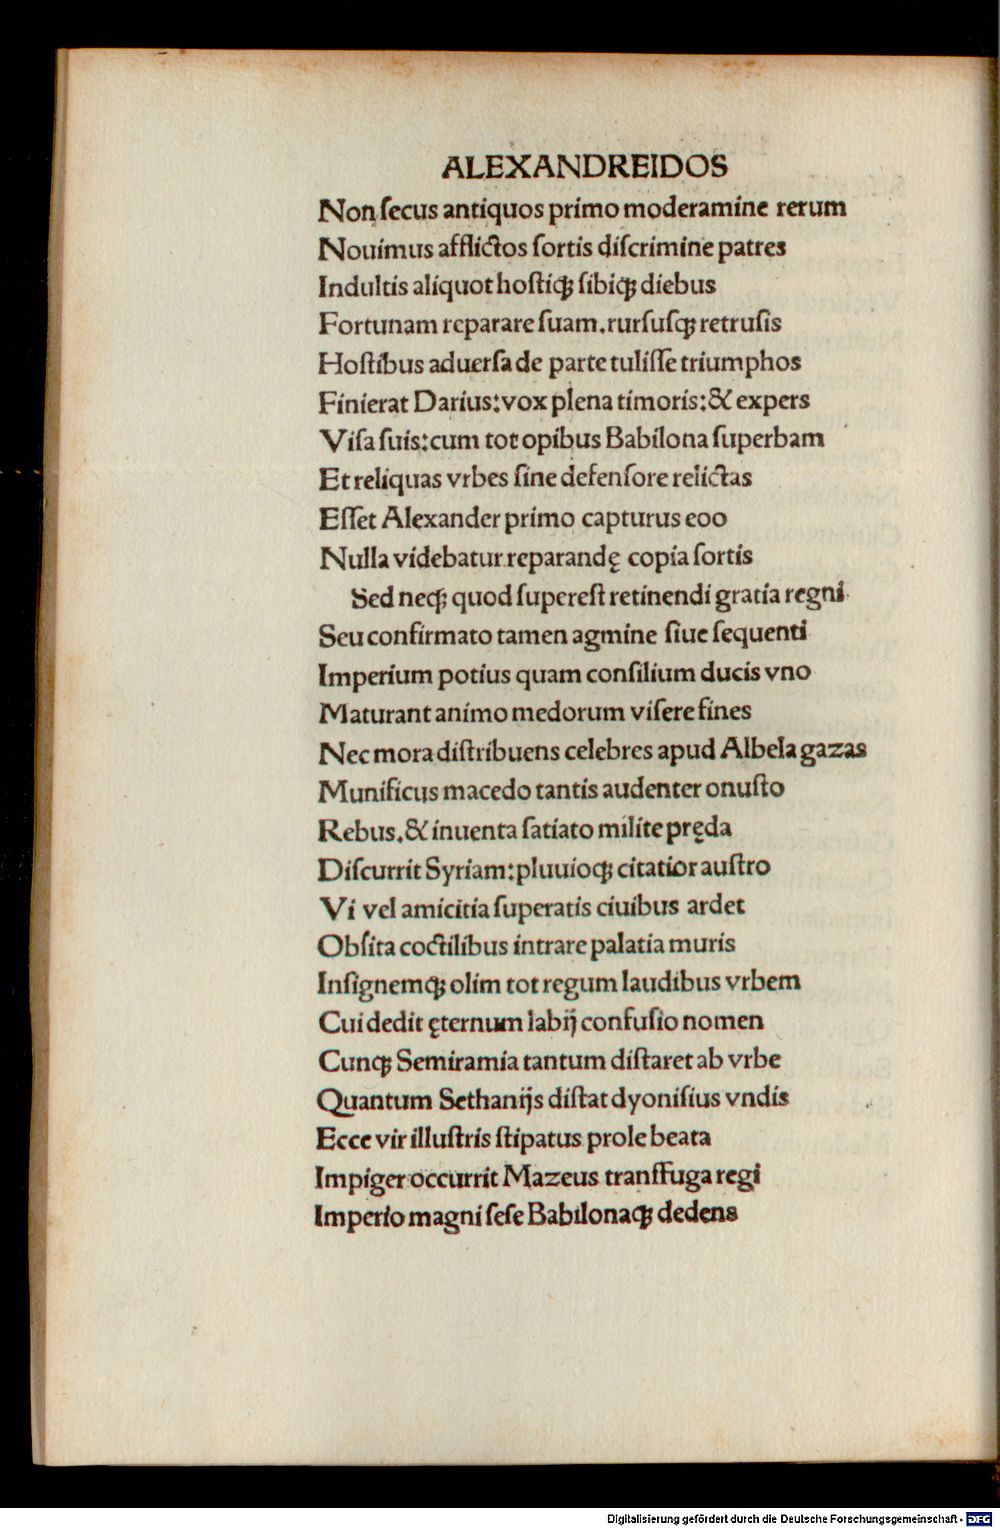 ALEXANDREIDOS
Non ſecus antiquos primo moderamine rerum
Nouimus afflictos ſortis diſcrimine patres
Indultis aliquot hoſtiqꝫ ſibiqꝫ diebus
Fortunam reparare ſuam.rurſuſqꝫ retruſis
Hoſtibus aduerſa de parte tuliſſe triumphos
Finierat Darius:vox plena timoris:& expers
Viſa ſuis:cum tot opibus Babilona ſuperbam
Et reliquas vrbes ſine defenſore relictas
Eſſet Alexander primo capturus eoo
Nulla videbatur reparandę copia ſortis
Sed neqꝫ quod ſupereſt retinendi gratia regni
Seu confirmato tamen agmine ſiue ſequenti
Imperium potius quam conſilium ducis vno
Maturant animo medorum viſere fines
Nec mora diſtribuens celebres apud Albela gazas
Munificus macedo tantis audenter onuſto
Rebus.& inuenta ſatiato milite pręda
Diſcurrit Syriam:pluuioqꝫ citatior auſtro
Vi vel amicitia ſuperatis ciuibus ardet
Obſita coctilibus intrare palatia muris
Inſignemqꝫ olim tot regum laudibus vrbem
Cui dedit ęternum labij confuſio nomen
Cunqꝫ Semiramia tantum diſtaret ab vrbe
Quantum Sethanijs diſtat dyoniſius vndis
Ecce vir illuſtris ſtipatus prole beata
Impiger occurrit Mazeus tranſfuga regi
Imperio magni ſeſe Babilonaqꝫ dedens
Digitalisierung gefördert durch die Deutsche Forschungsgemeinschaft - DFG